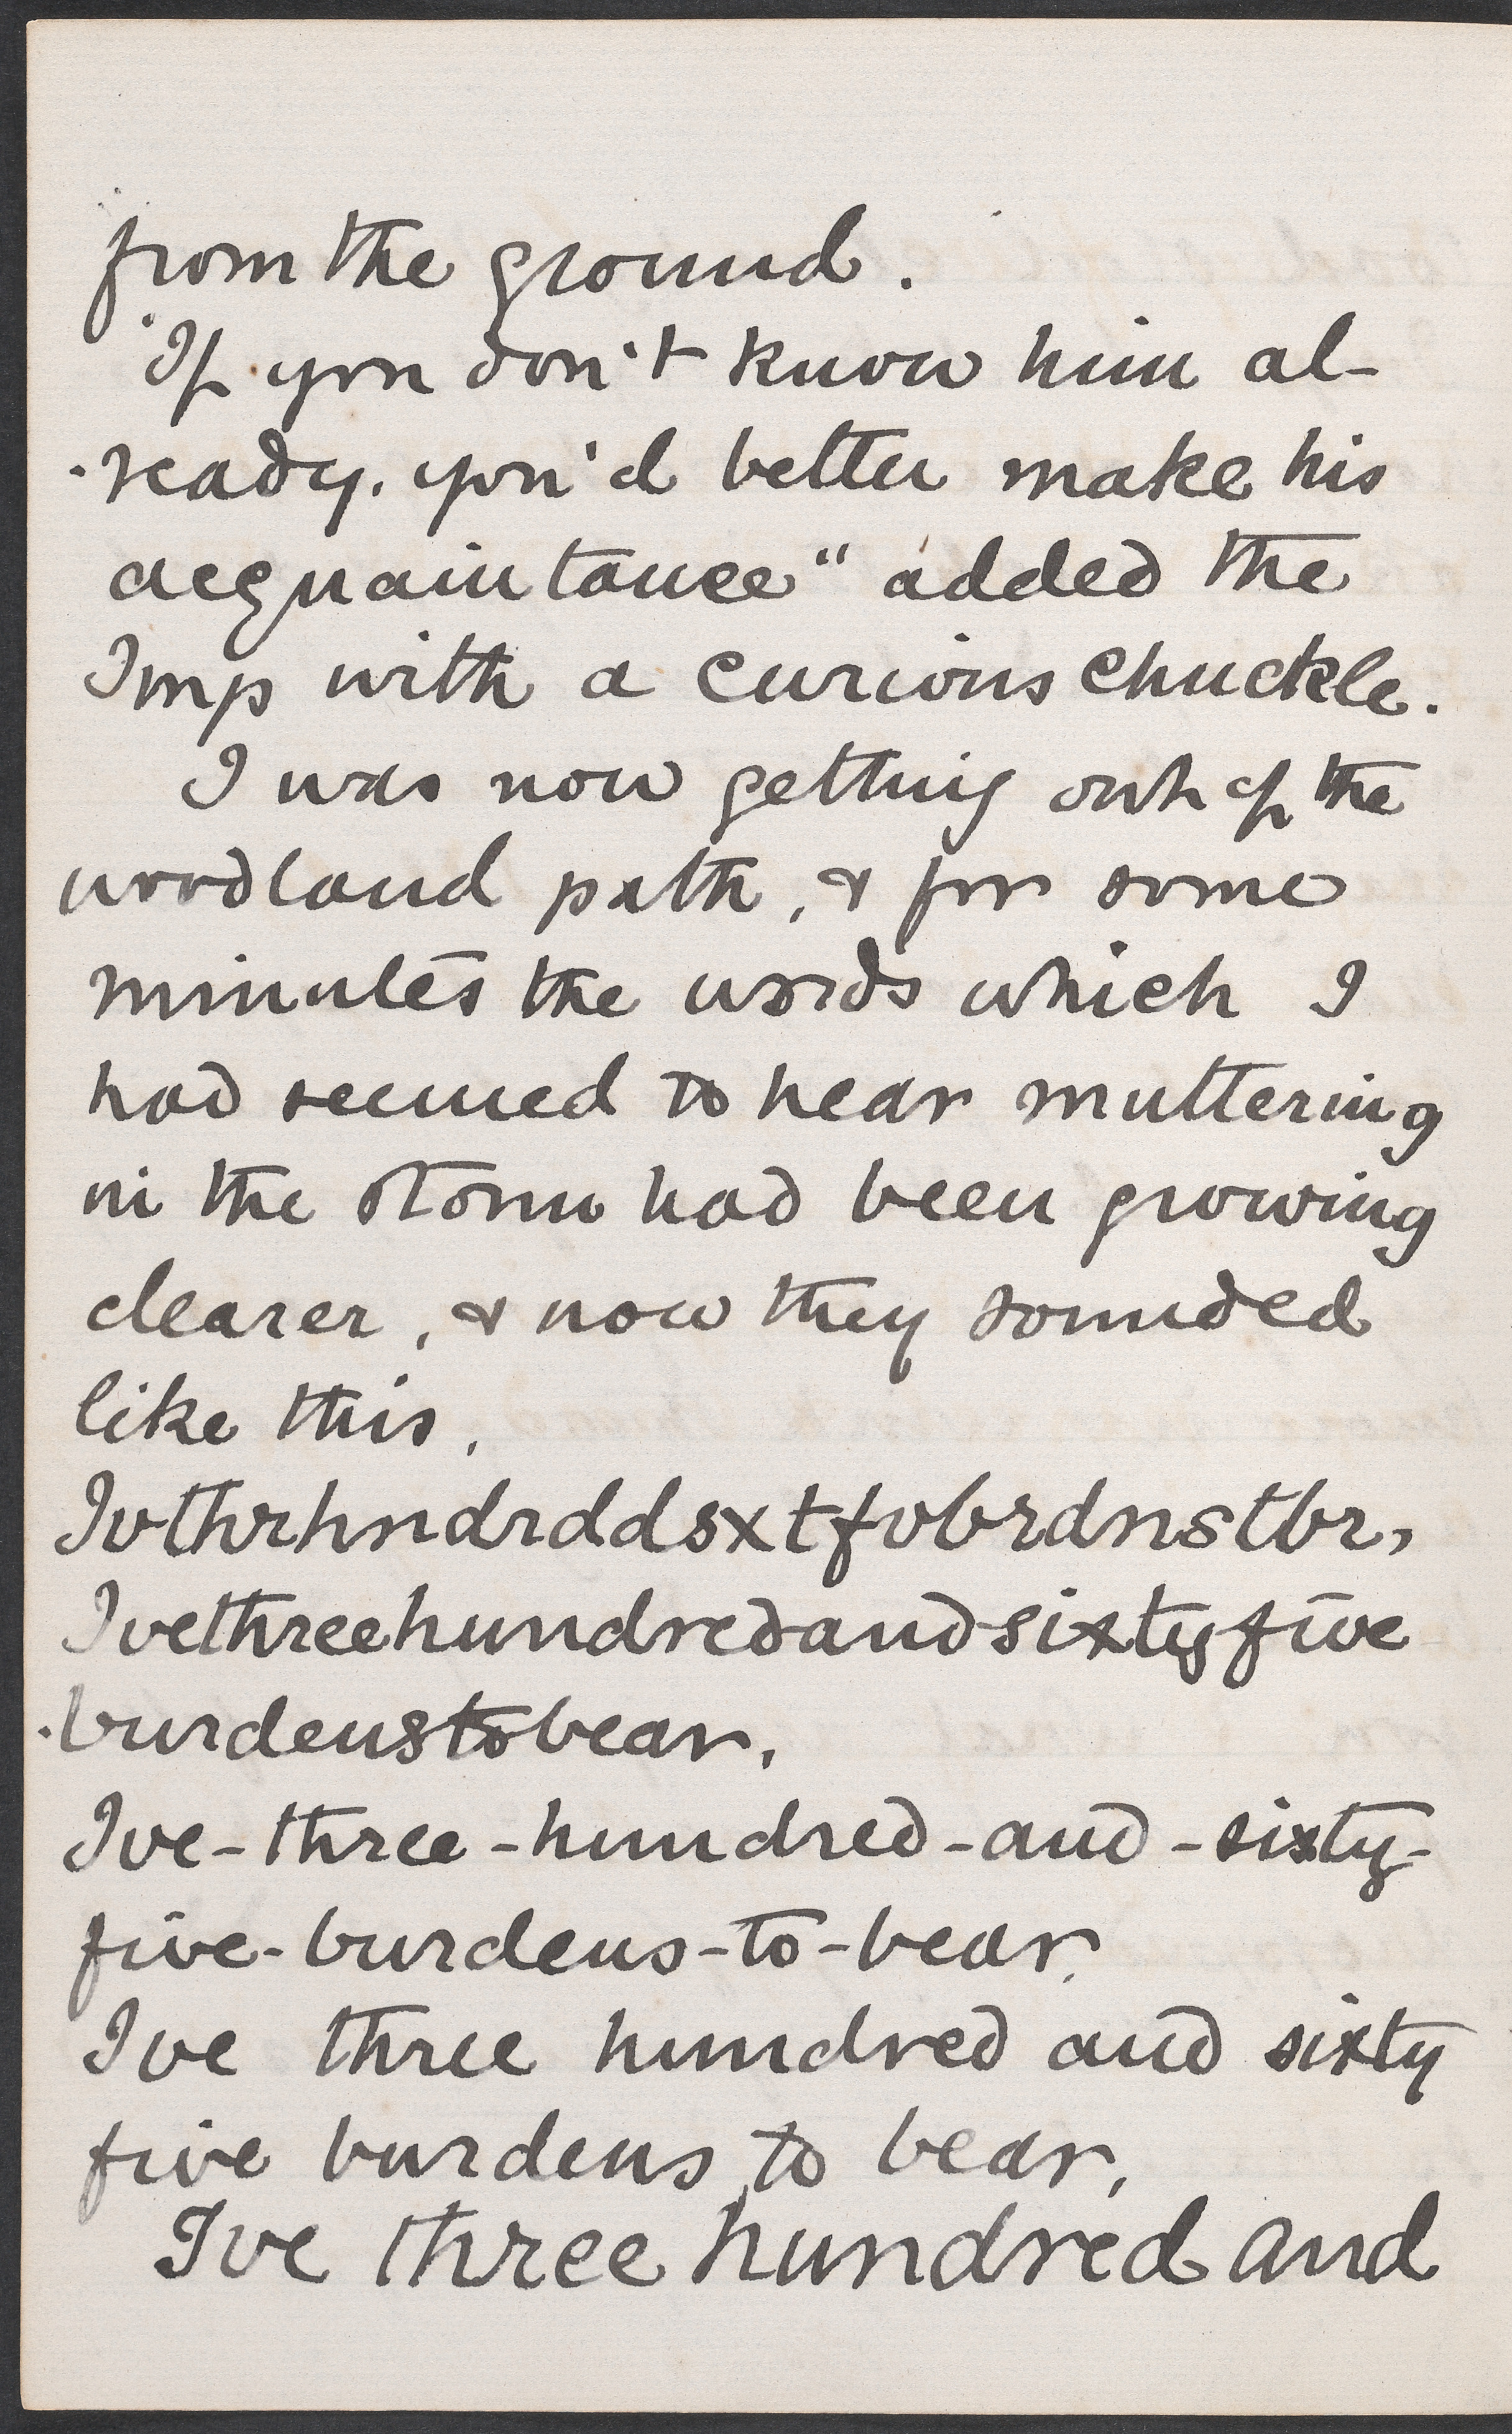 from the ground.
"If you don't know him al-
-ready, you'd better make his
acquaintance" added the
Imp with a curious chuckle.
I was now getting out of the
woodland path, & for some
minutes the words which I
had seemed to hear muttering
in the storm had been growing
clearer, & now they sounded
like this.
Ivthrhndrddsxtfvbrdnstbr,
Ivethreehundredandsixtyfive
-burdenstobear,
Ive-three-hundred-and-sixty-
five-burdens-to-bear,
Ive three hundred and sixty
five burdens to bear,
Ive three hundred and